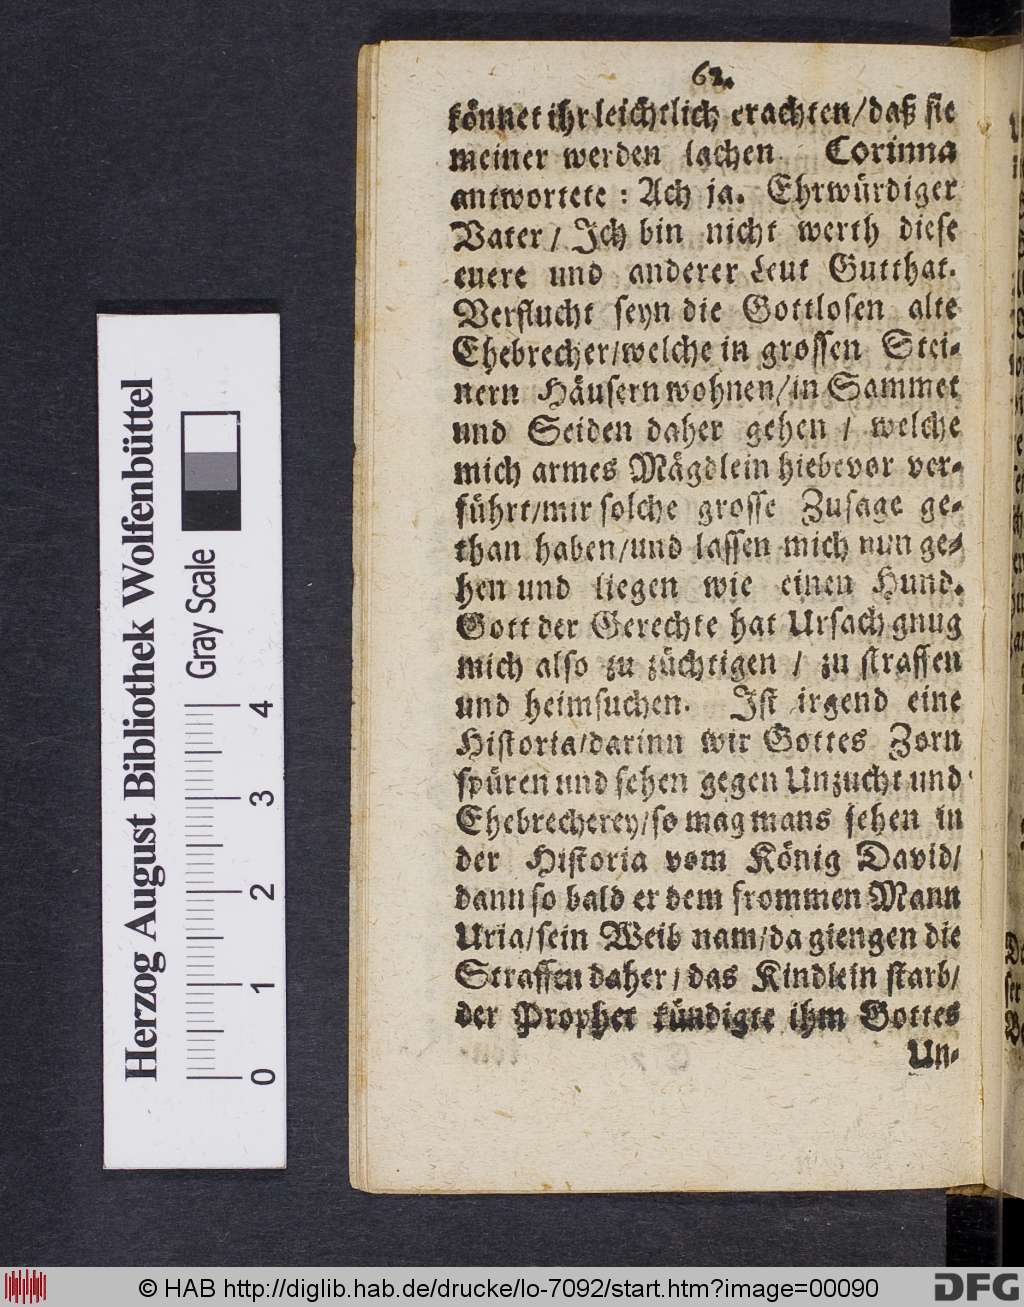 62.
könnet ihr leichtlich erachten/daß sie
meiner werden lachen. Corinna
antwortete : Ach ja. Ehrwürdiger
Vater / Ich bin nicht werth diese
euere und anderer Leut Gutthat.
Verflucht seyn die Gottlosen alte
Ehebrecher/welche in grossen Stei-
nern Häusern wohnen/in Sammet
und Seiden daher gehen / welche
mich armes Mägdlein hiebevor ver-
führt/mir solche grosse Zusage ge-
than haben/und lassen mich nun ge-
hen und liegen wie einen Hund.
Gott der Gerechte hat Ursach gnug
mich also zu züchtigen / zu straffen
und heimsuchen. Ist irgend eine
Historia/darinn wir Gottes Zorn
spüren und sehen gegen Unzucht und
Ehebrecherey/so mag mans sehen in
der Historia vom König David/
dann so bald er dem frommen Mann
Uria/sein Weib nam/da giengen die
Straffen daher / das Kindlein starb/
der Prophet kündigte ihm Gottes
Un-
Herzog August Bibliothek Wolfenbüttel
Gray Scale
0 1 2 3 4
© HAB http://diglib.hab.de/drucke/lo-7092/start.htm?image=00090
DFG